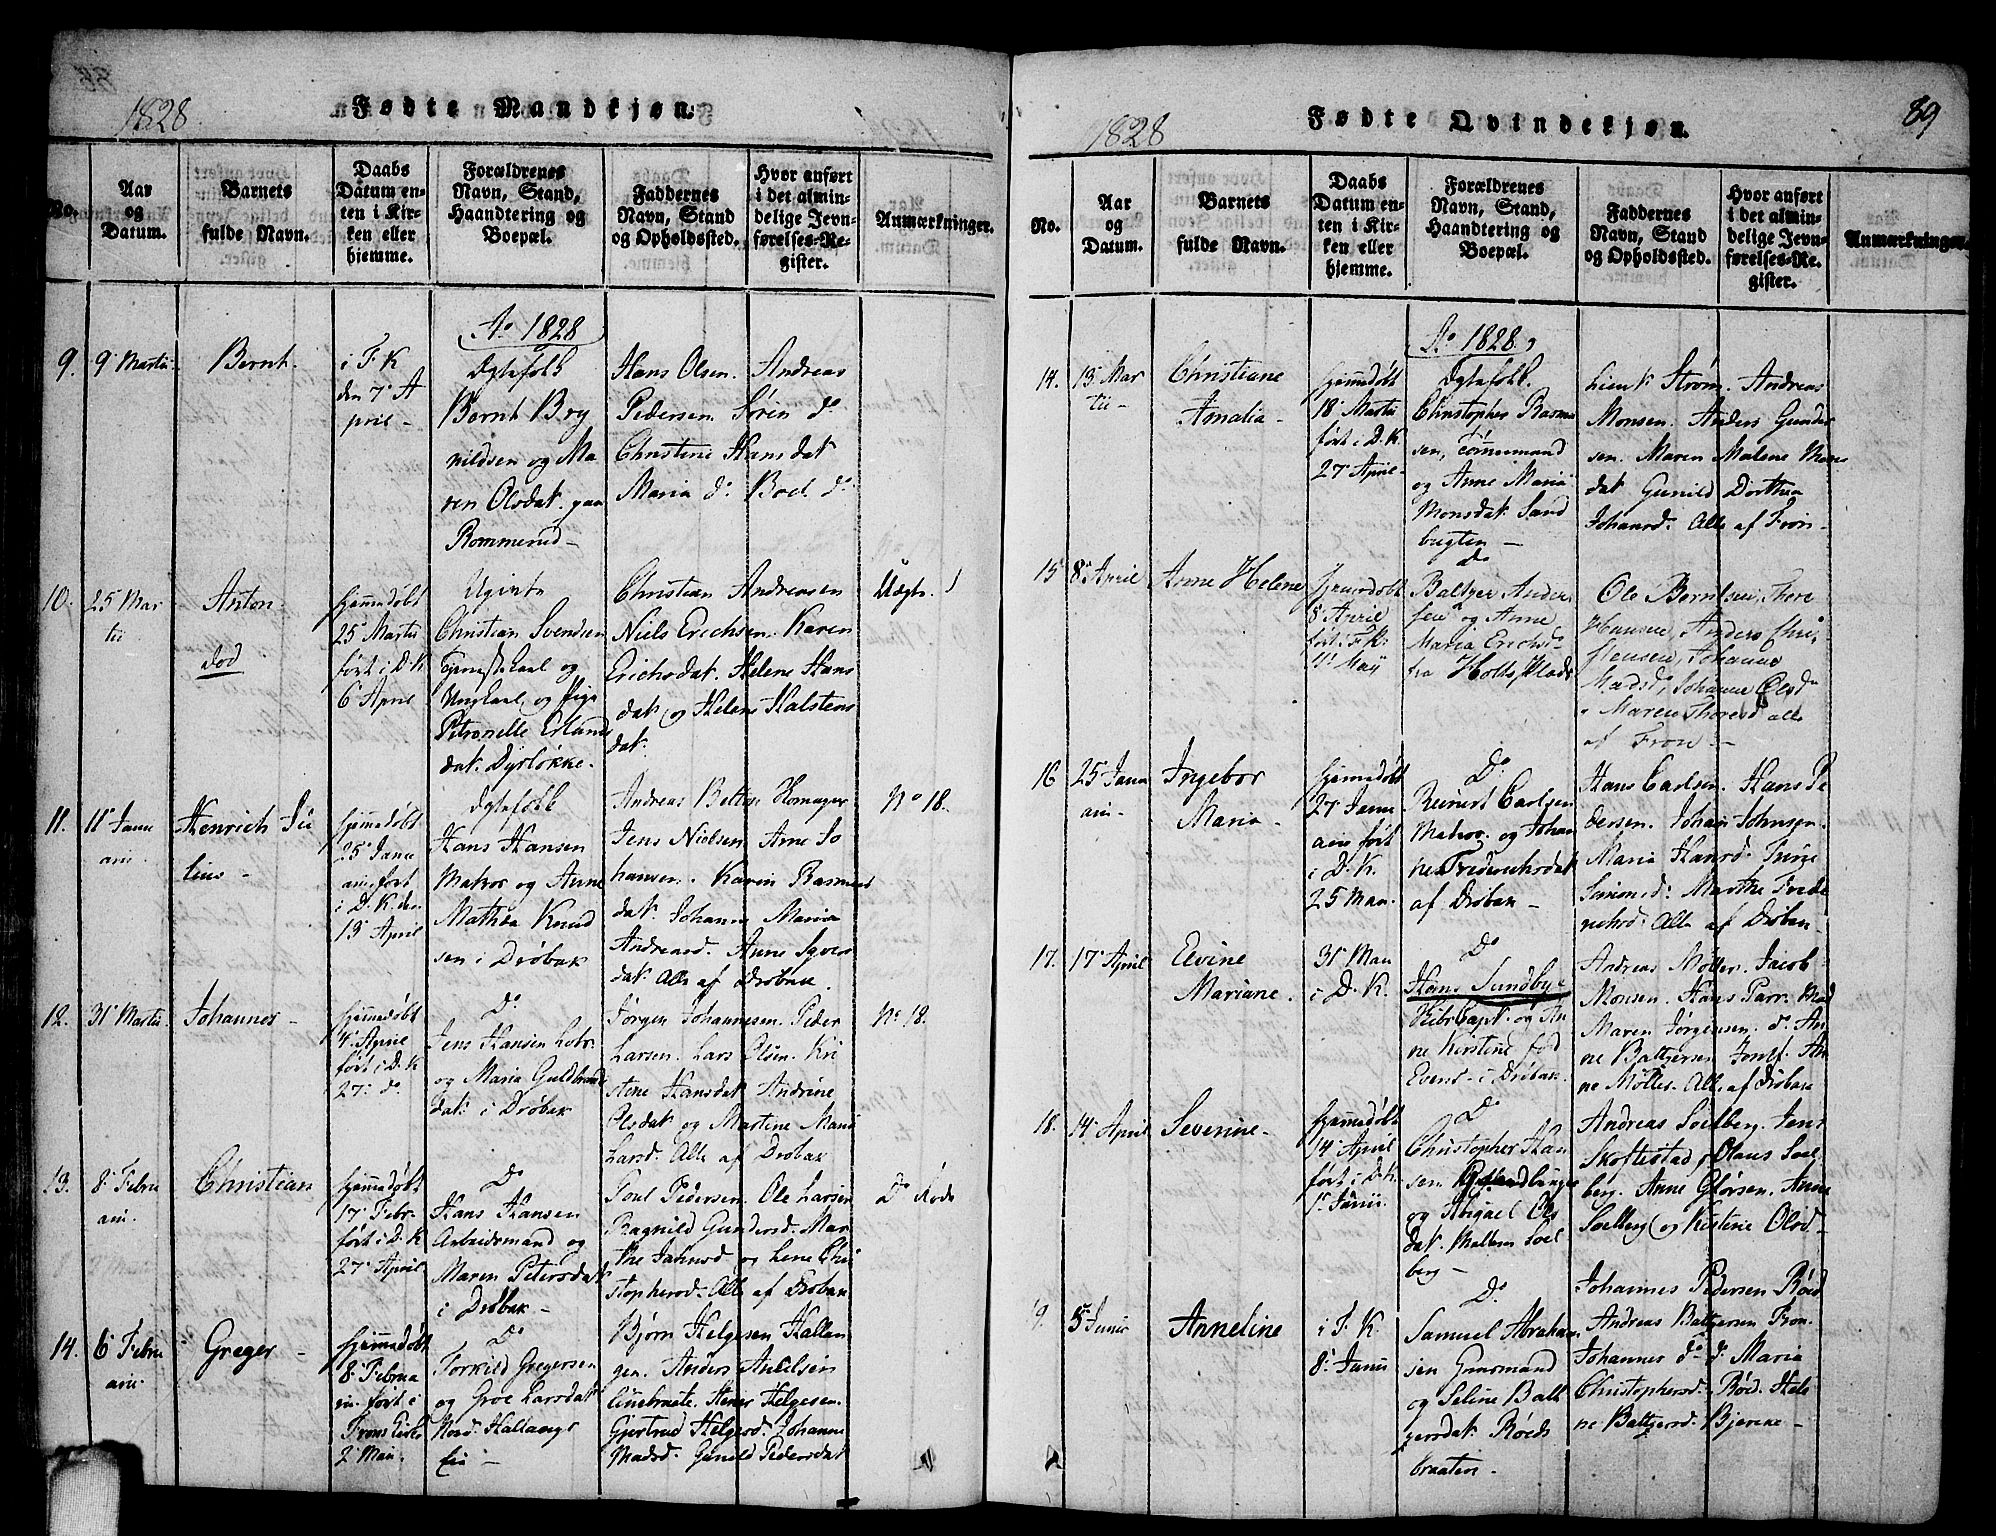 1828
Fødte Mandkjøn.
No.
Aar og Datum.
Barnets fulde Navn.
Daabs Datum enten i Kirken eller hjemme.
Forældrenes Navn, Stand, Haandtering og Boepæl.
Faddernes Navn, Stand og Opholdssted.
Hvor anført i det almindelige Jevnførelses-Register.
Anmærkninger.
Ao 1828
9.
9 Martii
Bernt.
i F. K
den 7 A
pril -
Ægtefolk
Bernt Bry
nildsen og Ma
ren Olsdat.
Rommerud -
Hans Olsen. Andreas
Pedersen Søren do
Christine Hansdat
Maria do Boel do
10.
25 Mar
tii
Anton.
død
hjemmedøbt
25 Martii
ført i D. K
6 April
Ugivte
Christian Svendsen
Ungkarl og Pige
Petronelle Erlands
dat. Dyrløkke.
Christian Andreasen
Niels Erichsen. Karen
Erichsdat. Helene Hans
dat og Helene Halstens
dat.
Uægte.
11.
11 Janu
arii.
Henrich Ju
lius -
hjemmedøbt
25 Janu
arii ført
i D. K. den
13 April
Ægtefolk
Hans Hansen
Matros og Anne
Mathea Knud
sen i Drøbak
Andreas Beltin
Jens Nielsen Arne Jo
hansen. Karen Rasmus
dat. Johanne Maria
Andreasd. Anne Syvers
dat. Alle af Drøbak.
No 18.
12.
31 Martii.
Johannes -
hjemmedøbt
4 April
ført i D. K
27. do
Do
Jens Hansen
og Maria Guldbrands
dat. i Drøbak
Jørgen Johannesen. Peder
Larsen. Lars Olsen. Kri
stene Hansdat Andrine
Olsdat og Martine Marie
Larsd. Alle af Drøbak
No 18.
13.
8 Febru
arii.
Christian
hjemmedøbt
17 Febr.
ført i D. K
27 April
Do
Hans Hansen
Arbeidsmand og
Maren Petersdat
i Drøbak -
Poul Pedersen. Ole Larsen
Ragnild Gundersd. Mar
the Jahnsd og Lene Chri
stophersd. Alle af Drøbak
Do
14.
6 Febru
arii.
Greger -
hjemmedøbt
8 Februa
rii. ført i
Frons Kirke
2 Maii.
Do
Torkild Gregersen
og Groe Larsdat
Nord. Hallangs
Eie -
Bjørn Helgesen Hallan
gen. Anders Anlesen
Helgesen.
Gjertrud Helgesd. Johanne
Madsd. Gunild Pedersdat
1828
Fødte Qvindekjøn.
89
No.
Aar og Datum.
Barnets fulde Navn.
Daabs Datum enten i Kirken eller hjemme.
Forældrenes Navn, Stand, Haandtering og Boepæl.
Faddernes Navn, Stand og Opholdssted.
Hvor anført i det almindelige Jevnførelses-Register.
Anmærkninger.
Ao 1828
14.
13 Mar
tii -
Christiane
Amalia -
hjemmedøbt
18 Martii
ført i D. K
27 April -
Ægtefolk.
Christopher Rasmu
sen, Tømmermand
og Anne Maria
Monsdat. Sand
bugten -
Strøm. Andreas
Monsen. Anders Gunder
sen. Maren Malene Mons
dat Gunild Dorthea
Johansd. Alle af Fron -
15
8 April
Anne Helene
hjemmedøbt
8 April
ført i F. K.
11 Maij
do
Baltzer Ander
sen og Anne
Maria Erichsd
fra Holts Plads
Ole Berntsen, Thore
Hansen, Anders Chri
stensen, Johanne
Madsd, Johanne Olsd
Maren Thoresd alle
af Fron -
16
25 Janu
arii -
Ingebor
Maria -
hjemmedøbt
27 Janu
arii ført
i D. K.
25 Maii.
Do
Reinert Carlsen
Matros. og Johan
ne Frederichsdat
af Drøbak -
Hans Carlsen. Hans Pe
dersen. Johan Johnsen.
Maria Hansd. Trine
Simonsd. Marthe Frede
richsd. Alle af Drøbak
17.
17 April
Elvine
Mariane.
31 Maii
i D. K.
Do
Hans Sundbye
Skibscapt. og An
ne Kirstine fød
Evens - i Drøbak
Andreas Møller. Jacob
Monsen. Hans Parr. Mad
Maren Jørgensen. do An
ne Baltzersen Jomf. An
ne Møller. Alle af Drøbak
18.
14 April
Severine -
hjemmedøbt
14 April
ført i D. K.
1 Junii.
Do
Christopher Han
sen
og Abigael Ols
dat. Mellem Soel
berg -
Andreas Soelberg. Jens
Skoftestad, Olaus Soel
berg. Anne Glørsen. Anne
Soelberg og Kistine Olsd -
19.
5 Junii
Anneline
i F. K.
8 Junii
Do
Samuel Abraham
sen Gaardmand
og Seline Balt
zersdat. Røeds
braaten -
Johannes Pedersen Røed
Andreas Baltzersen Fron.
Johannes do do Maria
Christophersd. Røed. Hele
ne Baltzersd. Bjereke -